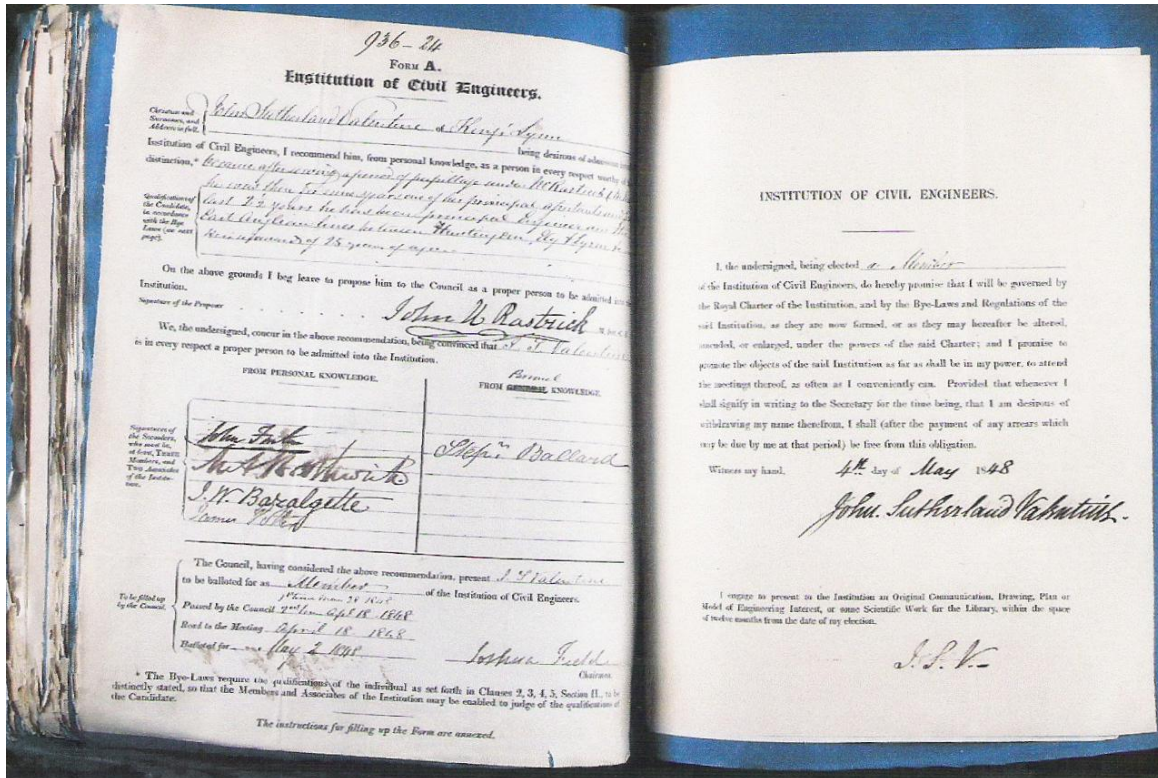 936-24
FORM A.
Institution of Civil Engineers.
Christian and
Surnames, and
Address in full.
John Sutherland Valentine of Kings Lynn
being desirous of admission
Institution of Civil Engineers, I recommend him, from personal knowledge, as a person in every respect worthy of
distinction,* because after serving a period of pupillage under
Qualification of
the Candidate,
in accordance
with the Bye
Laws (see next
page).
he was then for nine years one of his principal assistants
last 2½ years he has been principal Engineer
East Anglian lines between Huntingdon, Ely & Lynn &
being upwards of 25 years of age
On the above grounds I beg leave to propose him to the Council as a proper person to be admitted
Institution.
Signature of the Proposer John U Rastrick
We, the undersigned, concur in the above recommendation, being convinced that J. S Valentine
is in every respect a proper person to be admitted into the Institution.
FROM PERSONAL KNOWLEDGE.
FROM GENERAL KNOWLEDGE.
Signatures of
the Seconders,
who must be,
at least, THREE
Members, and
TWO Associates
of the Institution.
John
J. W. Bazalgette
James
Stepn Ballard
The Council, having considered the above recommendation, present J S Valentine
to be balloted for as Member of the Institution of Civil Engineers.
To be filled up
by the Council.
1st time 28 1848
Passed by the Council 2nd time April 18 1848
Read to the Meeting April 18 1848
Balloted for May 2 1848
Joshua Field
Chairman.
* The Bye-Laws require the qualifications of the individual as set forth in Clauses 2, 3, 4, 5, Section II., to be
distinctly stated, so that the Members and Associates of the Institution may be enabled to judge of the qualifications of
the Candidate.
The instructions for filling up the Form are annexed.
INSTITUTION OF CIVIL ENGINEERS.
I, the undersigned, being elected a Member
of the Institution of Civil Engineers, do hereby promise that I will be governed by
the Royal Charter of the Institution, and by the Bye-Laws and Regulations of the
said Institution, as they are now formed, or as they may hereafter be altered,
amended, or enlarged, under the powers of the said Charter; and I promise to
promote the objects of the said Institution as far as shall be in my power, to attend
the meetings thereof, as often as I conveniently can. Provided that whenever I
shall signify in writing to the Secretary for the time being, that I am desirous of
withdrawing my name therefrom, I shall (after the payment of any arrears which
may be due by me at that period) be free from this obligation.
Witness my hand. 4th day of May 1848
John. Sutherland Valentine.
I engage to present to the Institution an Original Communication, Drawing, Plan or
Model of Engineering Interest, or some Scientific Work for the Library, within the space
of twelve months from the date of my election.
J. S. V.